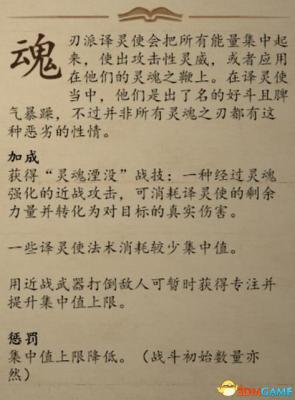 魂刃派译灵使会把所有能量集中起
来，使出攻击性灵威，或者应用
在他们的灵魂之鞭上。在译灵使
当中，他们是出了名的好斗且脾
气暴躁，不过并非所有灵魂之刃都有这
种恶劣的性情。
加成
获得“灵魂湮没”战技：一种经过灵魂
强化的近战攻击，可消耗译灵使的剩余
力量并转化为对目标的真实伤害。
一些译灵使法术消耗较少集中值。
用近战武器打倒敌人可暂时获得专注并
提升集中值上限。
惩罚
集中值上限降低。（战斗初始数量亦
然）
3DMGAME